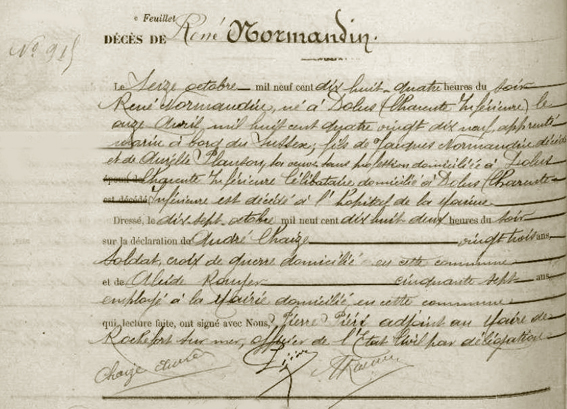 e Feuillet
N° 915
DÉCÈS DE René Normandin.
Le Seize octobre mil neuf cent dix huit quatre heures du soir
René Normandin, né à Dolus (Charente Inférieure) le
onze Avril mil huit cent quatre vingt dix neuf, apprenti
marin à bord du Sussex; fils de Jacques Normandin décédé
et de Aurélie sa veuve sans profession domiciliée à Dolus
Charente Inférieure Célibataire, domicilié à Dolus (Charente
est décédé Inférieure est décédé à l'hôpital de la Marine
Dressé, le dix sept octobre mil neuf cent dix huit deux heures du soir
sur la déclaration de André Chaize vingt trois ans,
soldat, croix de guerre domicilié en cette commune
et de Alcide cinquante sept ans,
employé à la Mairie domicilié en cette commune
qui, lecture faite, ont signé avec Nous, Pierre adjoint au Maire de
Rochefort sur mer, officier de l'Etat Civil par délégation
Chaize